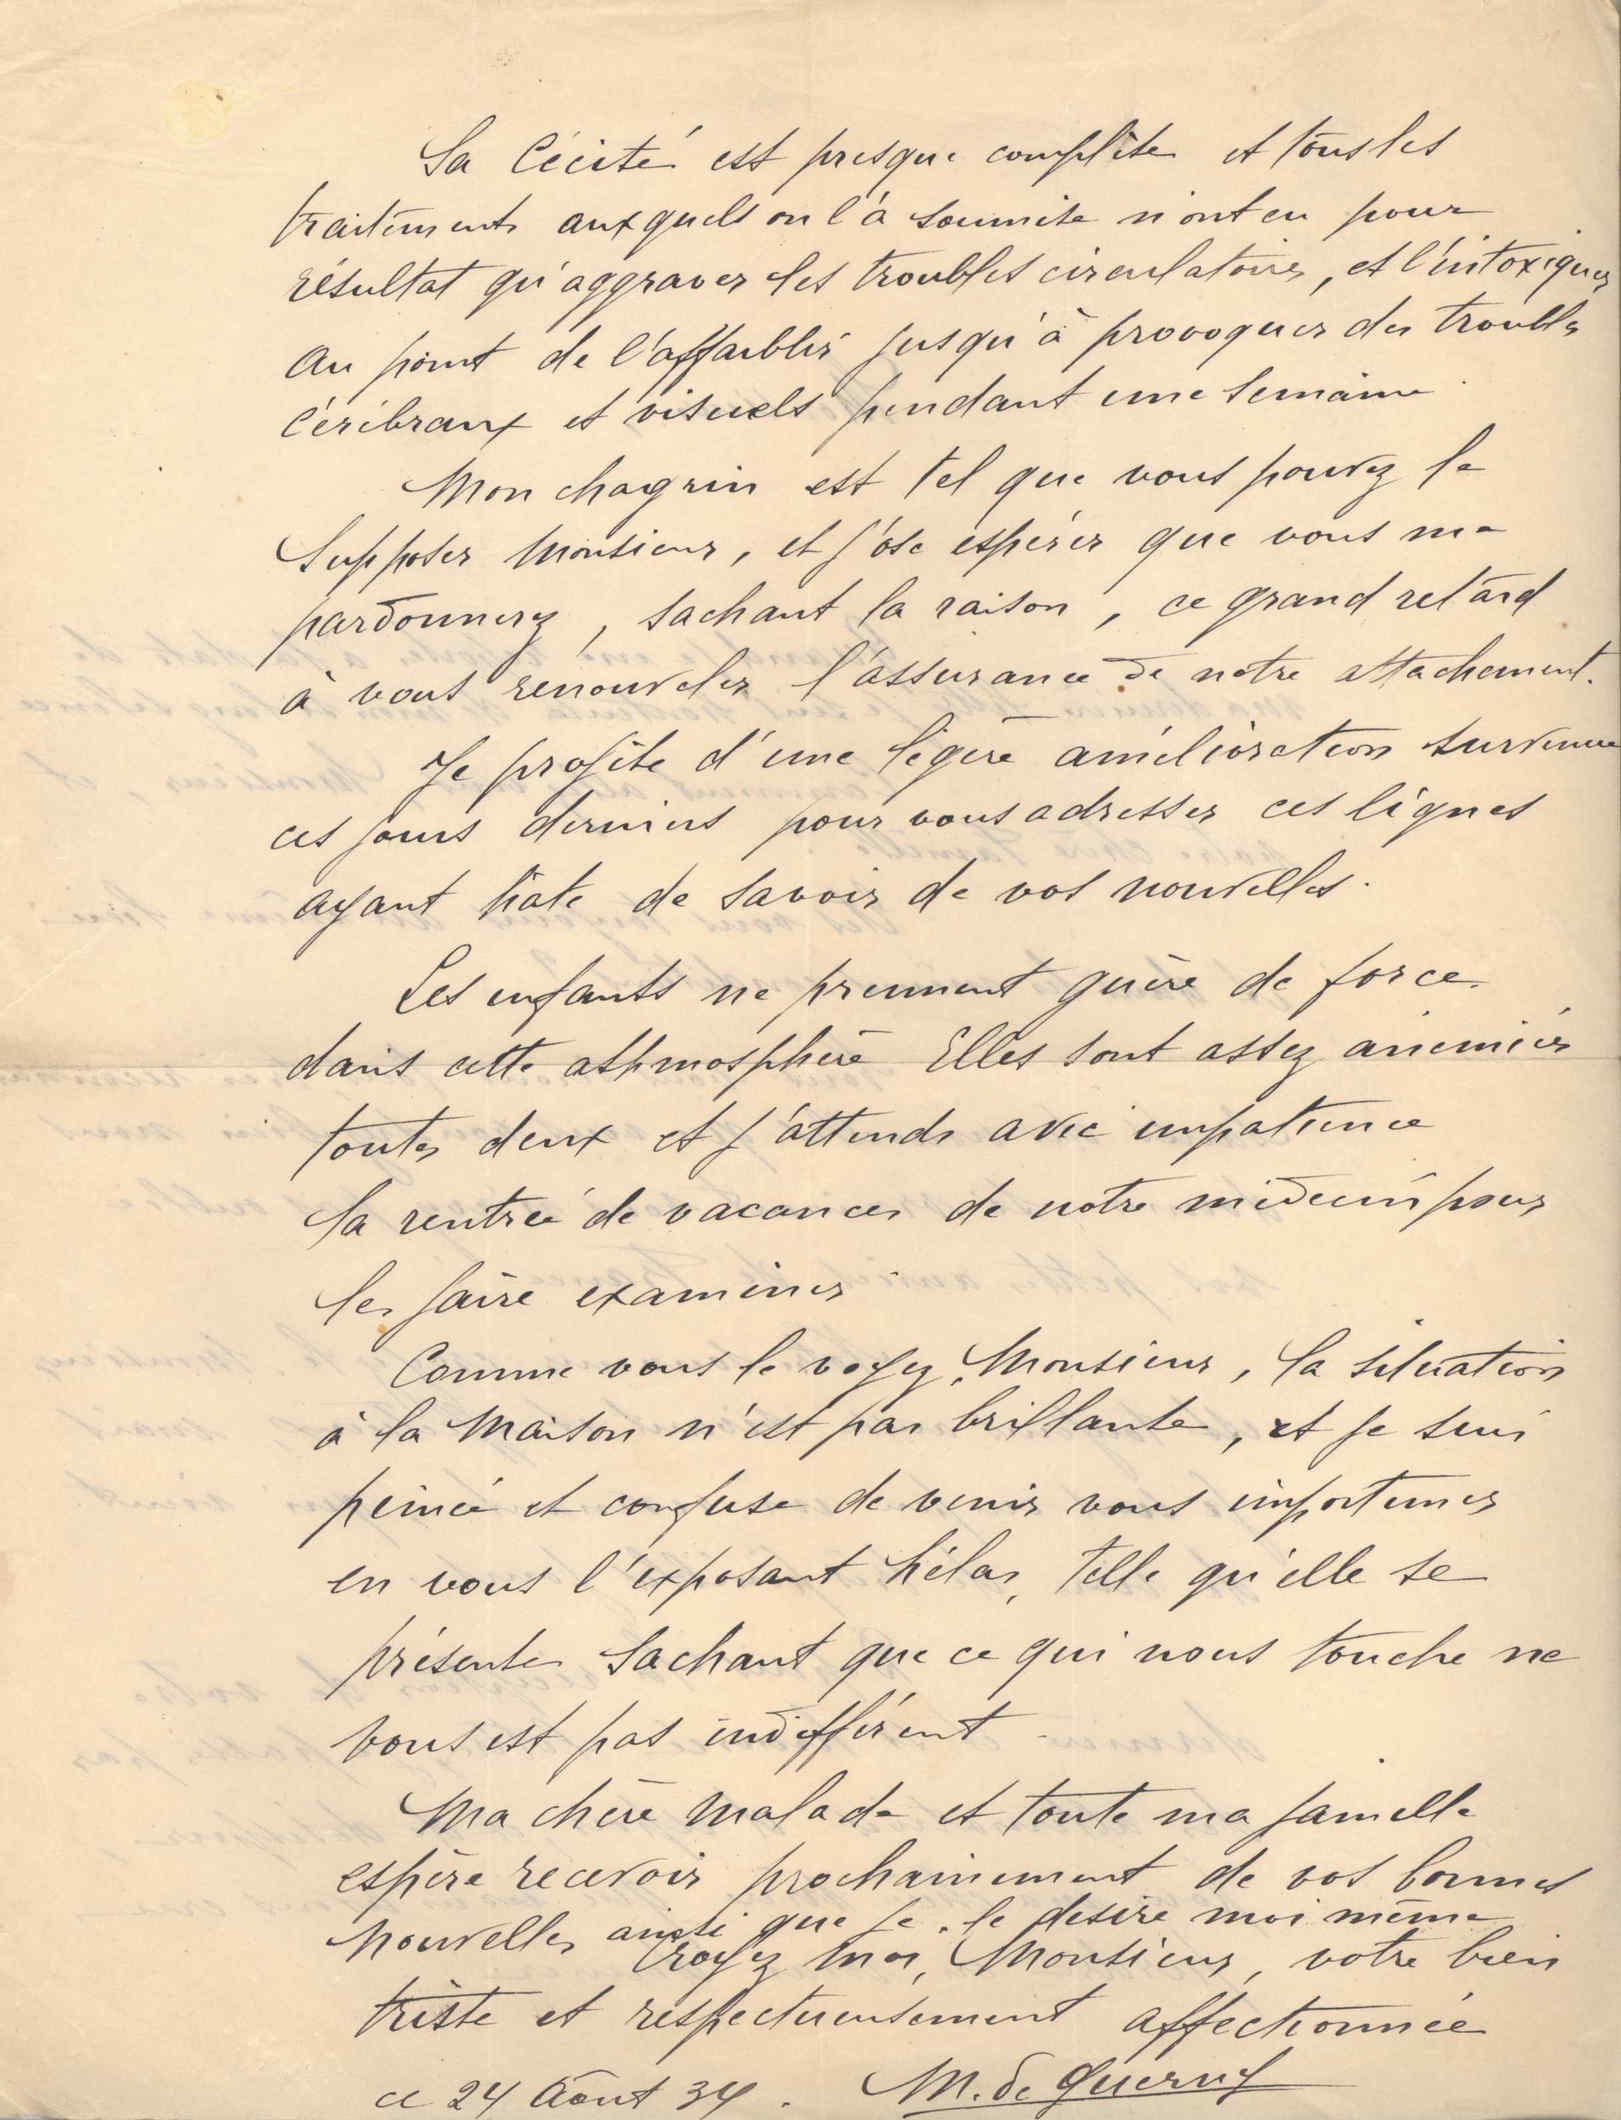 Sa Cécité est presque complète et tous les
traitements auxquels on l'a soumise n'ont eu pour
résultat qu'aggraver les troubles circulatoires, et l'intoxiquer
au point de l'affaiblir jusqu'à provoquer des troubles
cérébraux et visuels pendant une semaine.
Mon chagrin est tel que vous pouvez le
supposer Monsieur, et j'ose espérer que vous me
pardonnerez, sachant la raison, ce grand retard
à vous renouveler l'assurance de notre attachement.
Je profite d'une légère amélioration survenue
ces jours derniers pour vous adresser ces lignes
ayant hâte de savoir de vos nouvelles.
Les enfants ne prennent guère de force
dans cette athmosphère Elles sont assez anémiées
toutes deux et j'attends avec impatience
la rentrée de vacances de notre médecin pour
les faire examiner
Comme vous le voyez, Monsieur, la situation
à la Maison n'est pas brillante, et je suis
peinée et confuse de venir vous importuner
en vous l'exposant hélas, telle qu'elle se
présente sachant que ce qui nous touche ne
vous est pas indifférent.
Ma chère malade et toute ma famille
espère recevoir prochainement de vos bonnes
nouvelles ainsi que je le désire moi même
Croyez moi, Monsieur, votre bien
triste et respectueusement affectionnée
ce 24 Août 34. M. de Guerny